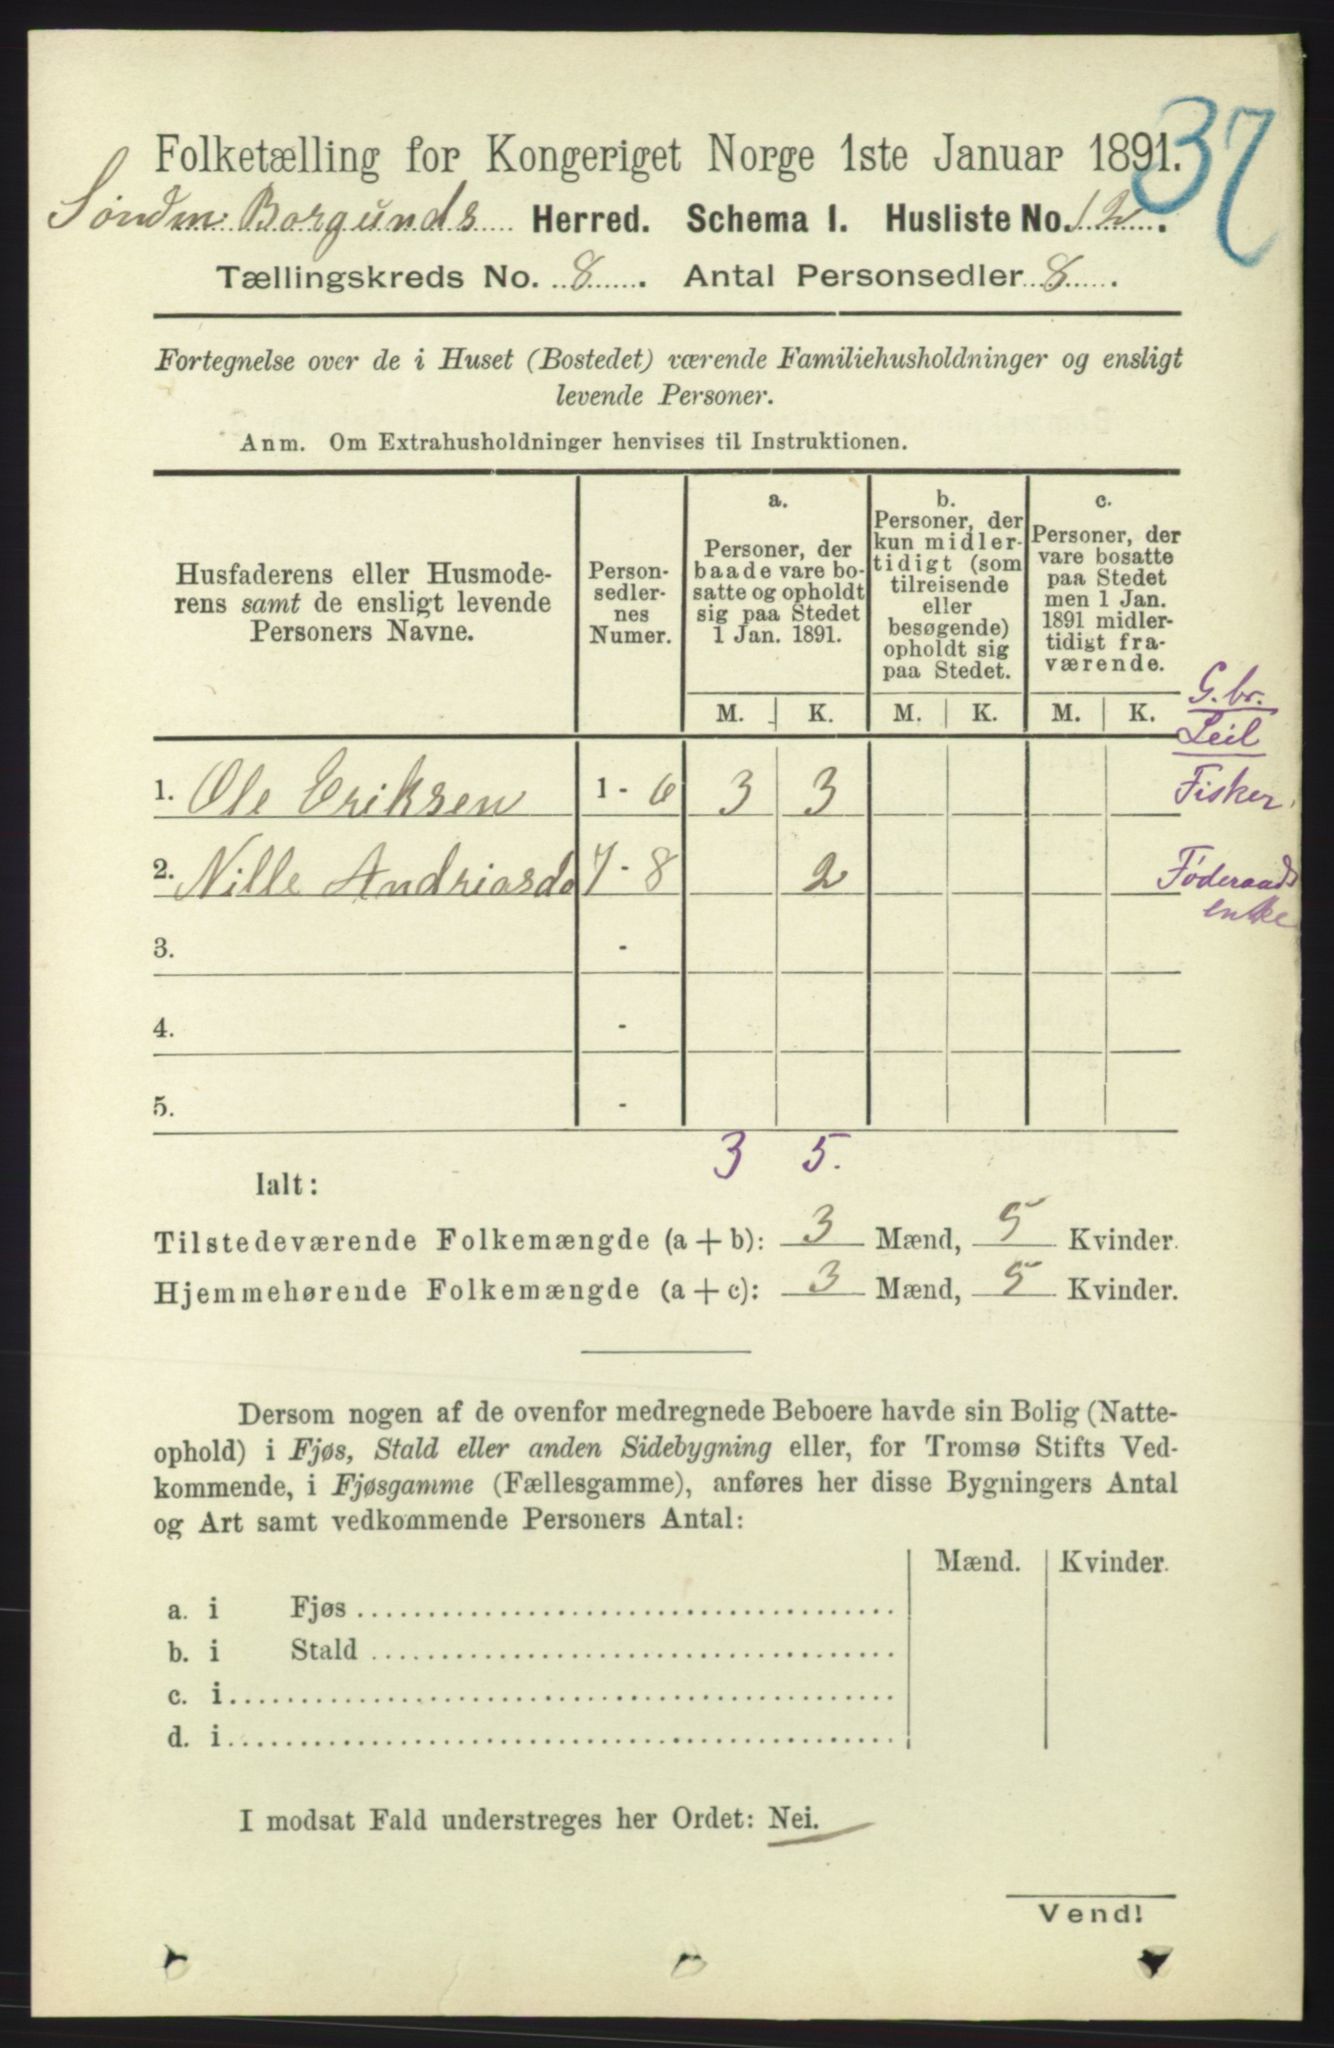 37
Folketælling for Kongeriget Norge 1ste Januar 1891.
Søndm. Borgunds Herred. Schema I. Husliste No. 12.
Tællingskreds No. 8. Antal Personsedler 8.
Fortegnelse over de i Huset (Bostedet) værende Familiehusholdninger og ensligt
levende Personer.
Anm. Om Extrahusholdninger henvises til Instruktionen.
Husfaderens eller Husmode-
rens samt de ensligt levende
Personers Navne.
Person-
sedler-
nes
Numer.
a.
Personer, der
baade vare bo-
satte og opholdt
sig paa Stedet
1 Jan. 1891.
b.
Personer, der
kun midler-
tidigt (som
tilreisende
eller
besøgende)
opholdt sig
paa Stedet.
c.
Personer, der
vare bosatte
paa Stedet
men 1 Jan.
1891 midler-
tidigt fra-
værende.
M. K. M. K. M. K.
G.br.
Leil
1. Ole Eriksen 1 - 6 3 3 Fisker,
2. Nille Andriasda 7 - 8 2 Føderaads
enke
3. -
4. -
5. -
3 5.
Ialt:
Tilstedeværende Folkemængde (a + b): 3 Mænd, 5 Kvinder.
Hjemmehørende Folkemængde (a + c): 3 Mænd, 5 Kvinder.
Dersom nogen af de ovenfor medregnede Beboere havde sin Bolig (Natte-
ophold) i Fjøs, Stald eller anden Sidebygning eller, for Tromsø Stifts Ved-
kommende, i Fjøsgamme (Fællesgamme), anføres her disse Bygningers Antal
og Art samt vedkommende Personers Antal:
Mænd. Kvinder.
a. i Fjøs
b. i Stald
c. i
d. i
I modsat Fald understreges her Ordet: Nei.
Vend!